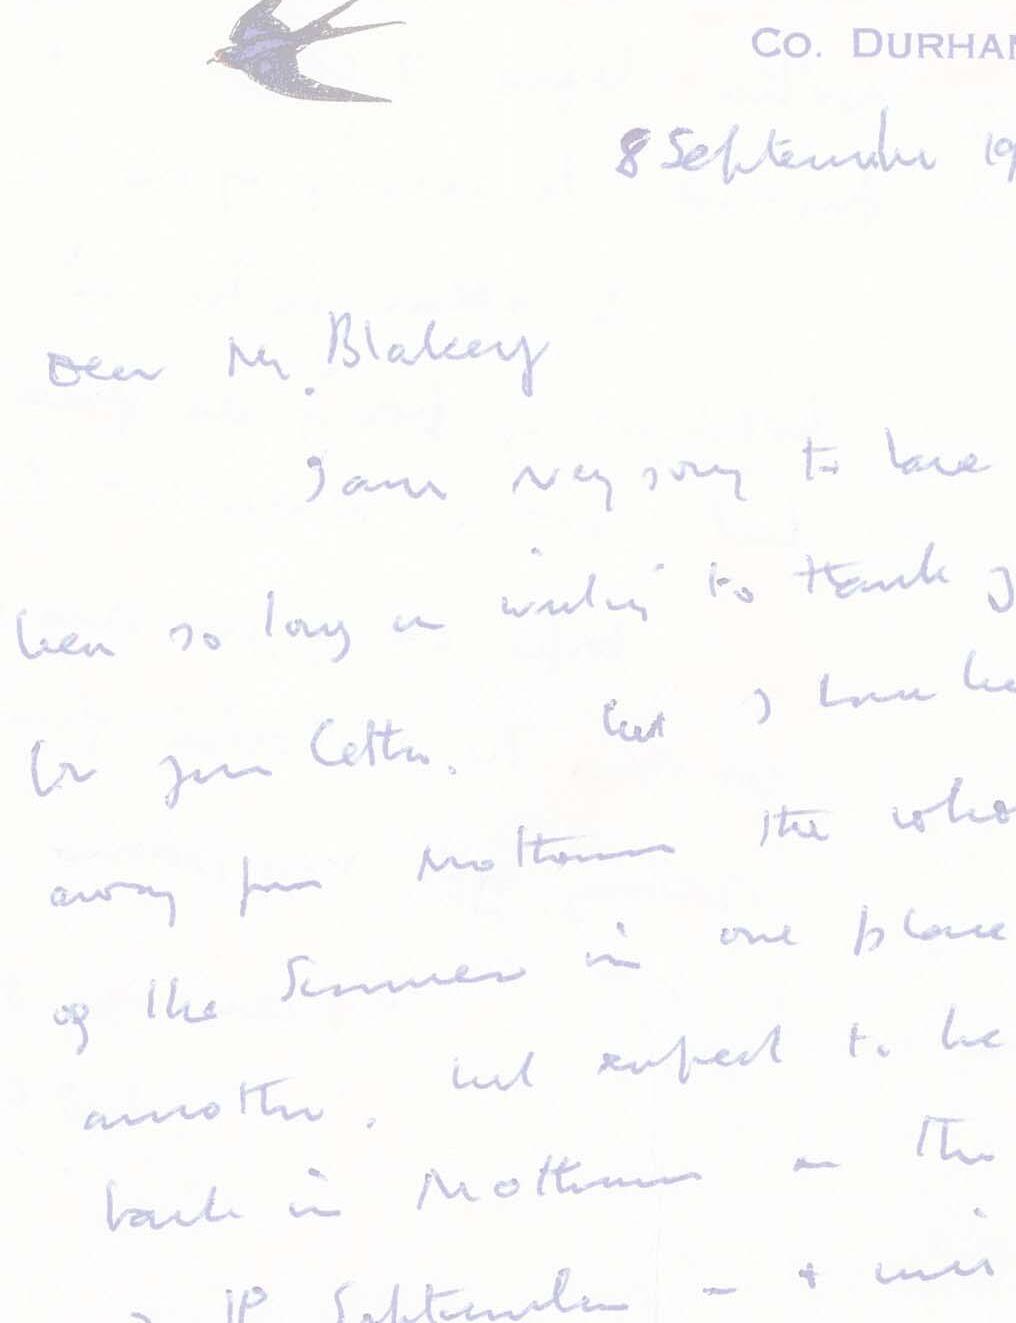 Co. DURHAM
8 September 19
Dear Mr. Blakey
I am very sorry to have
been so long in writing to thank y
for your letter. but I have be
away from Mottram the who
of the Summer in one place
another. but expect to be
back in Mottram on the
September - + will